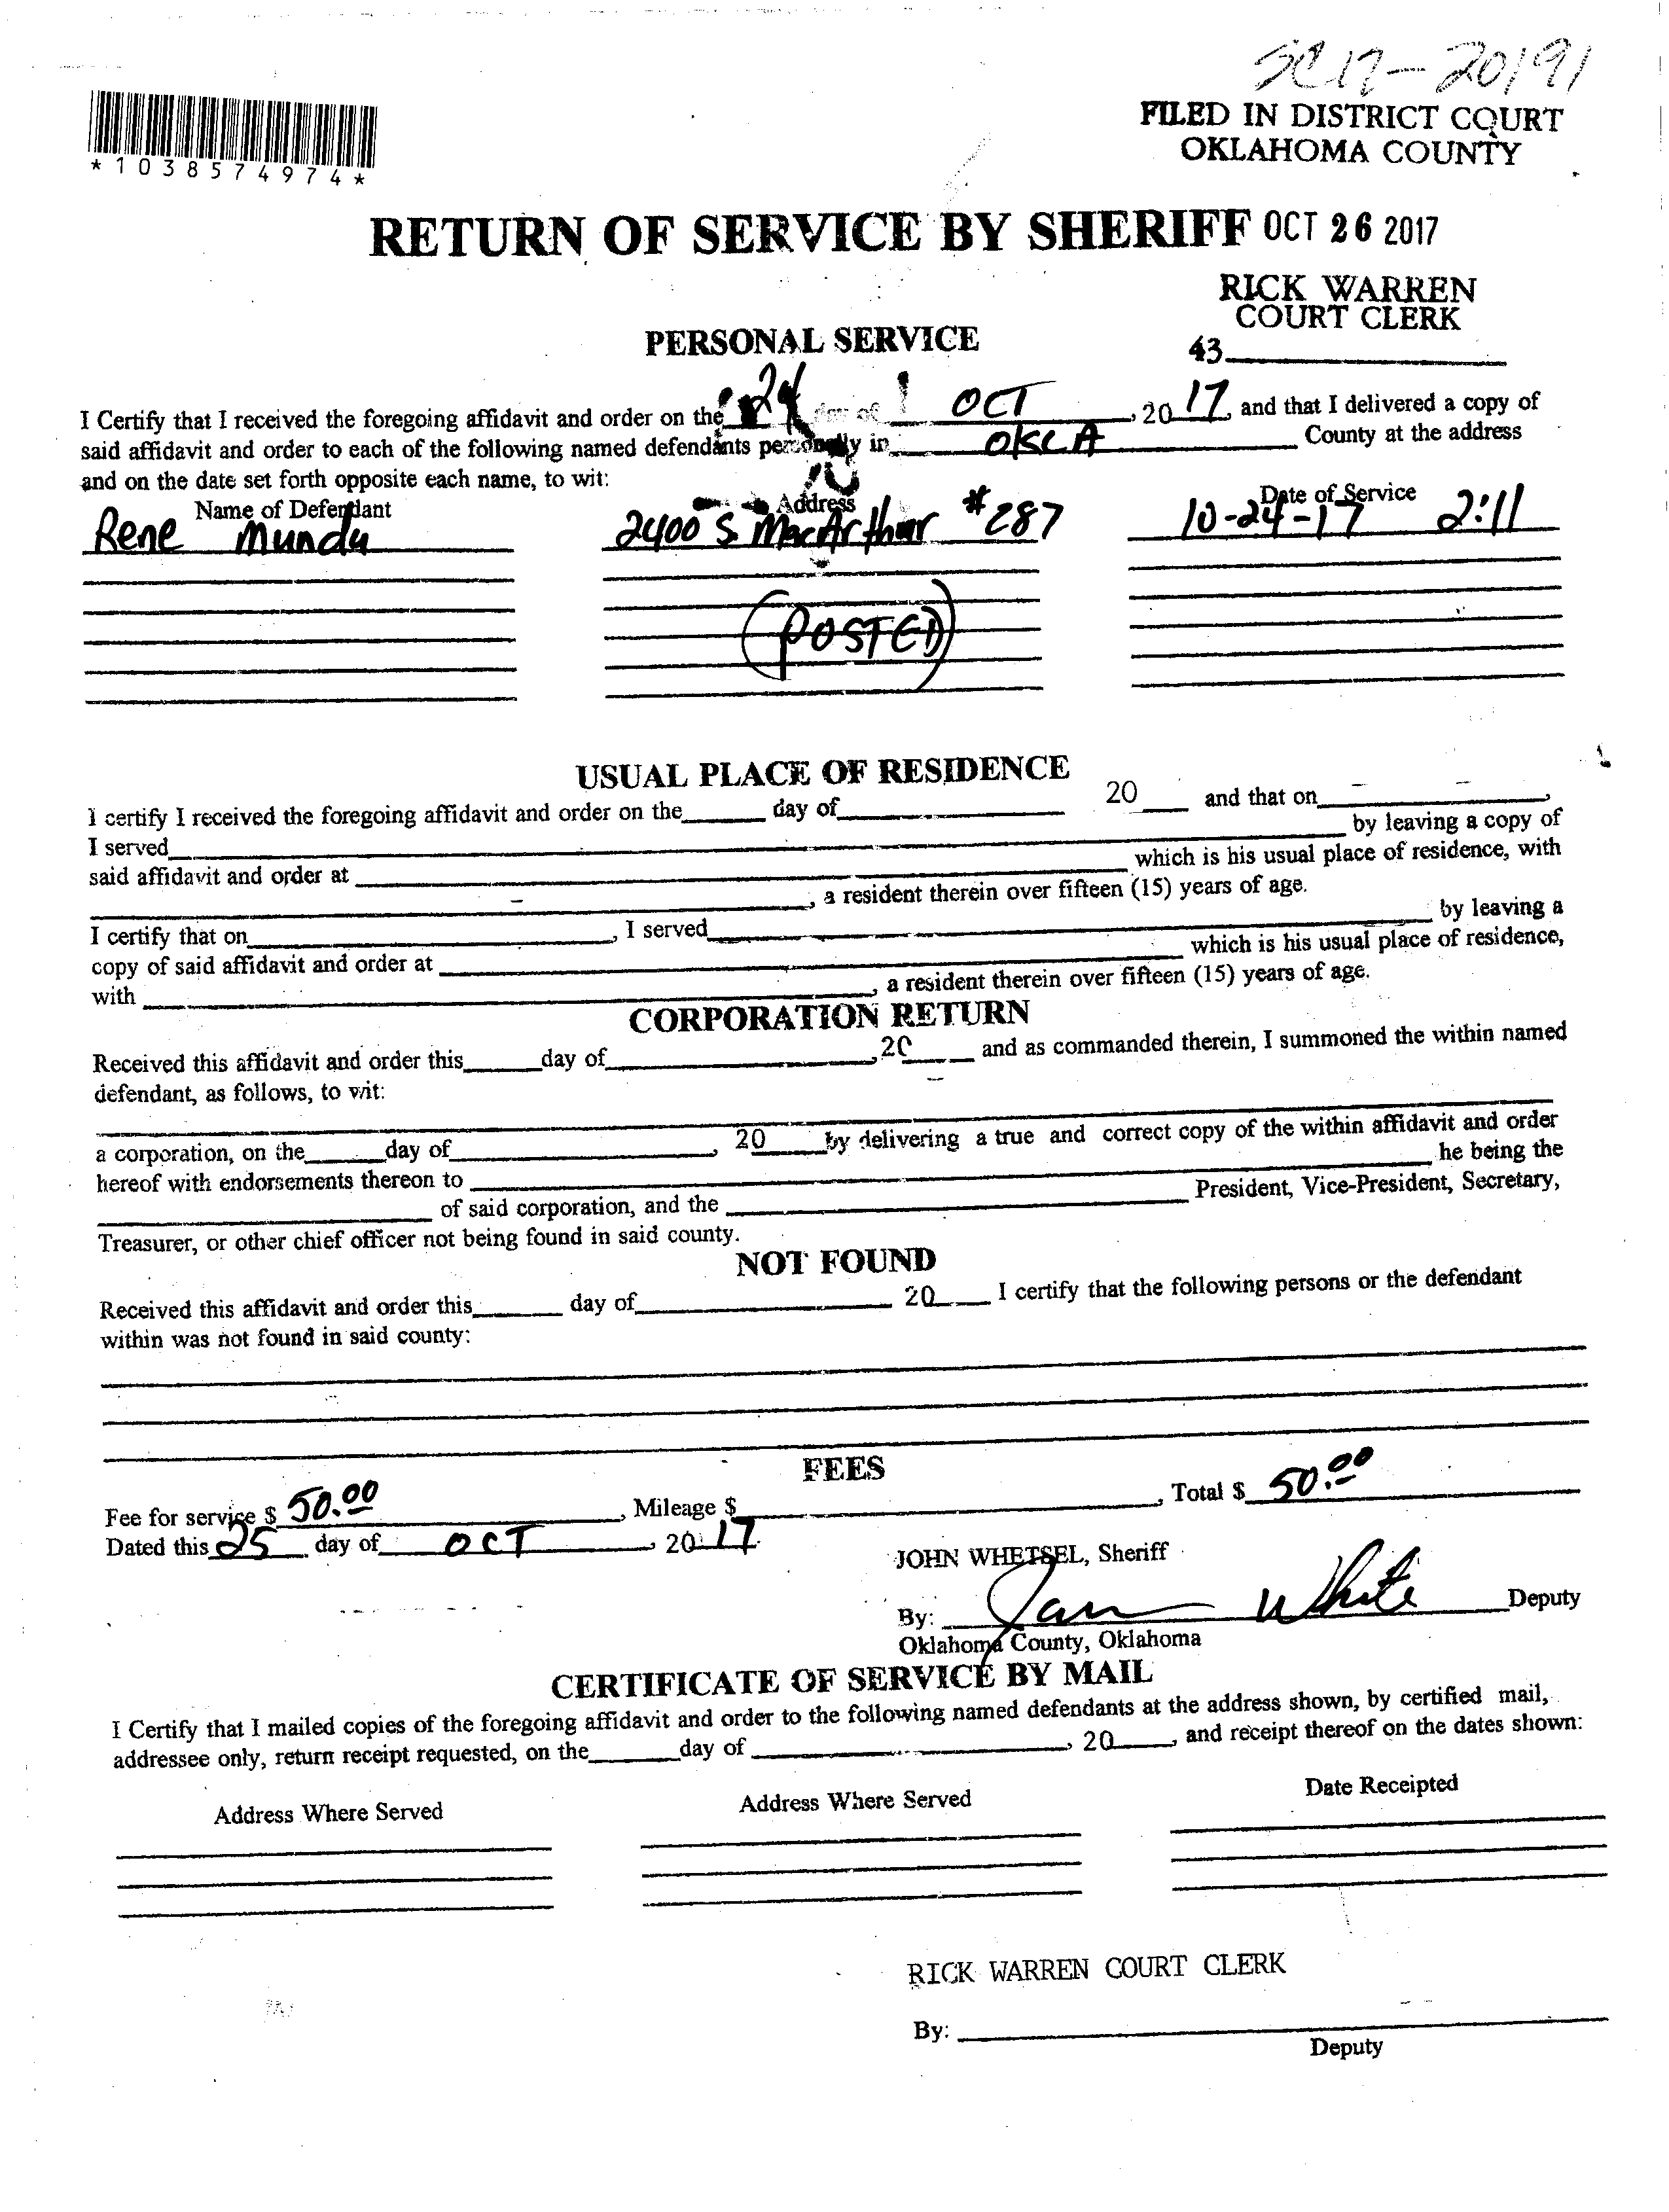 SC17-20191
FILED IN DISTRICT COURT
OKLAHOMA COUNTY
*1038574974*
RETURN OF SERVICE BY SHERIFF OCT 26 2017
RICK WARREN
COURT CLERK
PERSONAL SERVICE
43
I Certify that I received the foregoing affidavit and order on the 24 day of OCT, 20 17, and that I delivered a copy of
said affidavit and order to each of the following named defendants personally in OKLA County at the address
and on the date set forth opposite each name, to wit:
Name of Defendant Address Date of Service
Rene Mundu 2400 S MacArthur #287 10-24-17 2:11
(POSTED)
USUAL PLACE OF RESIDENCE
I certify I received the foregoing affidavit and order on the ____ day of ____ 20 ____ and that on ____,
I served ____ by leaving a copy of
said affidavit and order at ____ which is his usual place of residence, with
____, a resident therein over fifteen (15) years of age.
I certify that on ____, I served ____ by leaving a
copy of said affidavit and order at ____ which is his usual place of residence,
with ____, a resident therein over fifteen (15) years of age.
CORPORATION RETURN
Received this affidavit and order this ____ day of ____, 20 ____ and as commanded therein, I summoned the within named
defendant, as follows, to wit:
a corporation, on the ____ day of ____, 20 ____ by delivering a true and correct copy of the within affidavit and order
hereof with endorsements thereon to ____ he being the
____ of said corporation, and the ____ President, Vice-President, Secretary,
Treasurer, or other chief officer not being found in said county.
NOT FOUND
Received this affidavit and order this ____ day of ____ 20 ____ I certify that the following persons or the defendant
within was not found in said county:
FEES
Fee for service $ 50.00, Mileage $ ____, Total $ 50.00
Dated this 25 day of OCT, 20 17.
JOHN WHETSEL, Sheriff
By: White Deputy
Oklahoma County, Oklahoma
CERTIFICATE OF SERVICE BY MAIL
I Certify that I mailed copies of the foregoing affidavit and order to the following named defendants at the address shown, by certified mail,
addressee only, return receipt requested, on the ____ day of ____, 20 ____, and receipt thereof on the dates shown:
Address Where Served Address Where Served Date Receipted
RICK WARREN COURT CLERK
By: ____
Deputy